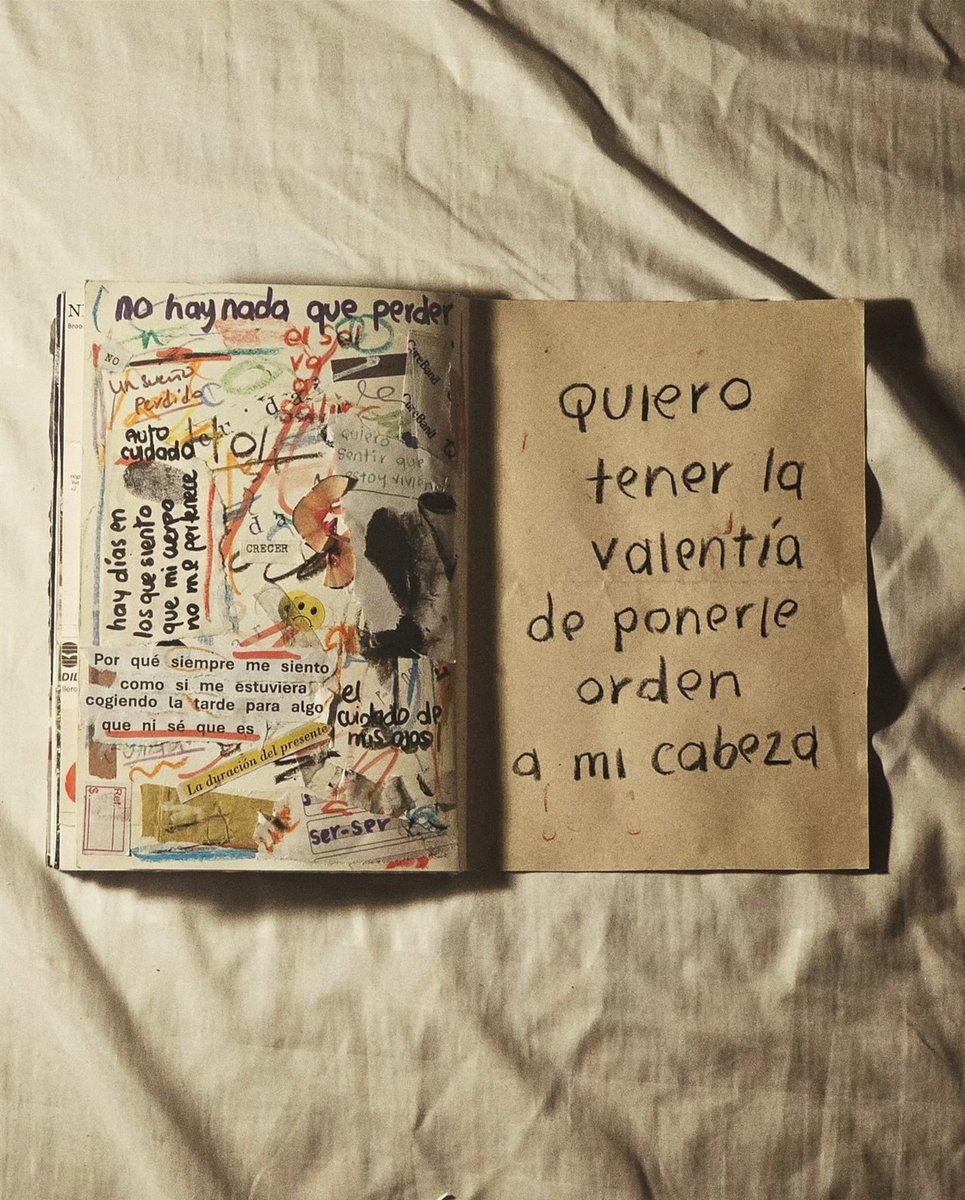 no hay nada que perder
el sol
NO
un sueño
perdido
CureBand
CureBand
auto
cuidado
quiero
sentir que
estoy viviend
hay días en
los que siento
que mi cuerpo
no me pertenece
CRECER
Por qué siempre me siento
como si me estuviera
cogiendo la tarde para algo
que ni sé que es
el
cuidado de
mis ojos
La duración del presente
Ref.
$.
ser-ser
Quiero
tener la
valentía
de ponerle
orden
a mi cabeza